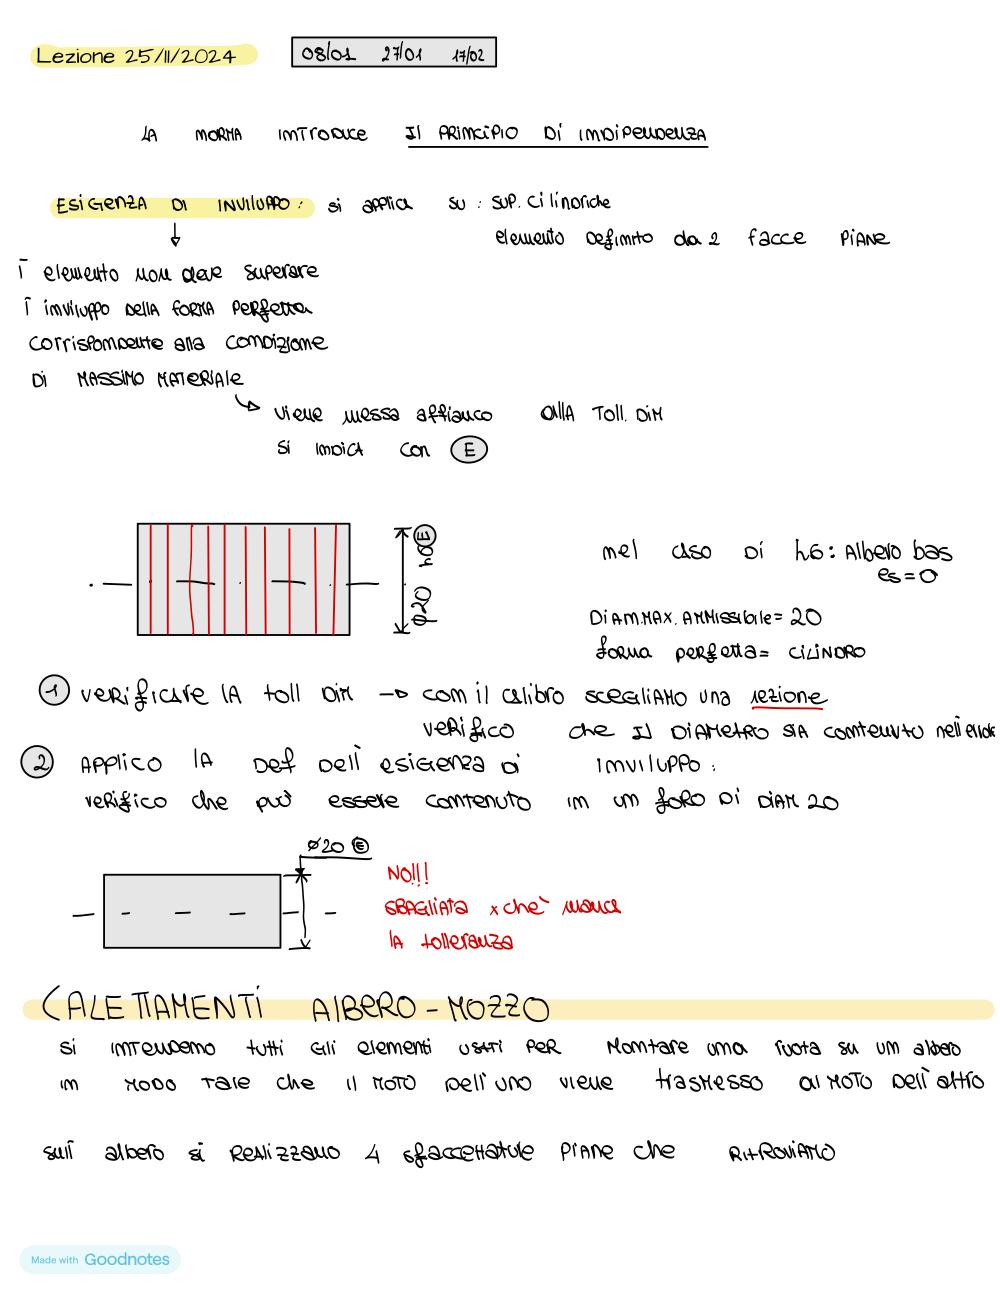 Lezione 25/11/2024
08/01 27/01 17/02
LA NORMA INTRODUCE Il PRINCIPIO DI INDIPENDENZA
ESIGENZA DI INVILUPPO: si applica su: SUP. Cilindriche
elemento DEFINITO da 2 facce PIANE
l' elemento non deve superare
l' inviluppo DELLA FORMA PERfetta
corrispondente alla CONDIZIONE
Di MASSIMO MATERIALE
viene messa affianco allA TOLL. DIM
si INDICA con E
⌀20 h6 E
nel caso Di h6: Albero bas
es=0
DIAM.MAX. AMMISSIBILE= 20
forma perfetta= CILINDRO
1 verificare lA toll DIM → con il calibro scegliAMO una sezione
verifico che Il DIAMETRO SIA contenuto nell'
2 APPLICO lA DEF Dell' esigenza Di INVILUPPO:
verifico che può essere contenuto in un foro Di DIAM 20
⌀20 E
NO!!!
SBAGLIATA xchè manca
lA tolleranza
CALETTAMENTI ALBERO-MOZZO
Si INTENDONO tutti Gli elementi usati PER Montare una ruota su un albero
in MODO TALE che il MOTO Dell'UNO viene TRASMESSO al MOTO Dell'altro
sull' albero si REALIZZANO 4 sfaccettature PIANE che RITROVIAMO
Made with Goodnotes